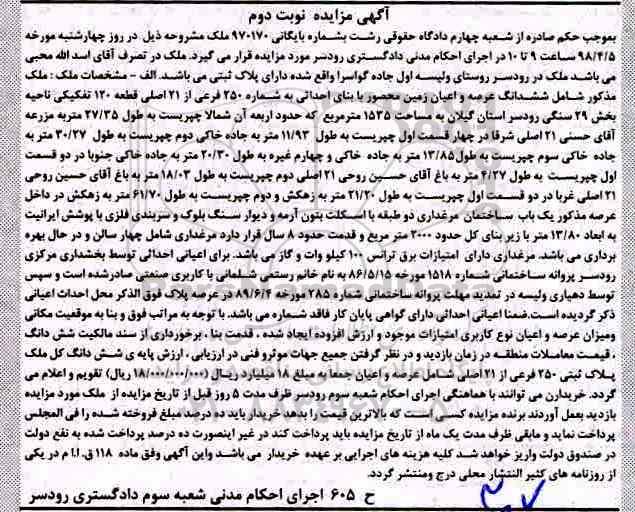 آگهی مزایده نوبت دوم
بموجب حکم صادره از شعبه چهارم دادگاه حقوقی رشت بشماره بایگانی ۹۷۰۱۷۰ ملک مشروحه ذیل در روز چهارشنبه مورخه
۹۸/۴/۵ ساعت ۹ تا ۱۰ در اجرای احکام مدنی دادگستری رودسر مورد مزایده قرار می گیرد. ملک در تصرف آقای اسد الله محبی
می باشد ملک در رودسر روستای ولیسه اول جاده گواسرا واقع شده دارای پلاک ثبتی می باشد. الف - مشخصات ملک : ملک
مذکور شامل ششدانگ عرصه و اعیان زمین محصور با بنای احداثی به شماره ۲۵۰ فرعی از ۲۱ اصلی قطعه ۱۲۰ تفکیکی ناحیه
بخش ۲۹ سنگی رودسر استان گیلان به مساحت ۱۵۳۵ مترمربع که حدود اربعه آن شمالا چپریست به طول ۲۷/۳۵ متربه مزرعه
آقای حسنی ۲۱ اصلی شرقا در چهار قسمت اول چپریست به طول ۱۱/۹۳ متر به جاده خاکی دوم چپریست به طول ۳۰/۲۷ متر به
جاده خاکی سوم چپریست به طول۱۳/۸۵ متر به جاده خاکی و چهارم غیره به طول ۲۰/۳۰ متر به جاده خاکی جنوبا در دو قسمت
اول چپریست به طول ۴/۲۷ متر به باغ آقای حسین روحی ۲۱ اصلی دوم چپریست به طول ۱۸/۰۳ متر به باغ آقای حسین روحی
۲۱ اصلی غربا در دو قسمت اول چپریست به طول ۲۱/۲۰ متر به زهکش و دوم چپریست به طول ۶۱/۷۰ متر به زهکش در داخل
عرصه مذکور یک باب ساختمان مرغداری دو طبقه با اسکلت بتون آرمه و دیوار سنگ بلوک و سربندی فلزی با پوشش ایرانیت
به ابعاد ۱۳/۸۰ متر با زیر بنای کل حدود ۲۰۰۰ متر مربع و قدمت حدود ۸ سال قرار دارد مرغداری شامل چهار سالن و در حال بهره
برداری می باشد. مرغداری دارای امتیازات برق ترانس ۱۰۰ کیلو وات و گاز می باشد. برای اعیانی احداثی توسط بخشداری مرکزی
رودسر پروانه ساختمانی شماره ۱۵۱۸ مورخه ۸۶/۵/۱۵ به نام خانم رستمی شلمانی با کاربری صنعتی صادرشده است و سپس
توسط دهیاری ولیسه در تمدید مهلت پروانه ساختمانی شماره ۲۸۵ مورخه ۸۹/۶/۲ در عرصه پلاک فوق الذکر محل احداث اعیانی
ذکر گردیده است.ضمنا اعیانی احداثی دارای گواهی پایان کار فاقد شماره می باشد. با توجه به مراتب فوق و بنا به موقعیت مکانی
ومیزان عرصه و اعیان نوع کاربری امتیازات موجود و ارزش افزوده ایجاد شده ، قدمت بنا ، برخورداری از سند مالکیت شش دانگ
، قیمت معاملات منطقه در زمان بازدید و در نظر گرفتن جمیع جهات موثرو فنی در ارزیابی ، ارزش پایه ی شش دانگ کل ملک
پلاک ثبتی ۲۵۰ فرعی از ۲۱ اصلی شامل عرصه و اعیان جمعا به مبلغ ۱۸ میلیارد ریال (۱۸/۰۰۰/۰۰۰/۰۰۰ ریال) تقویم و اعلام می
گردد. خریدارن می توانند با هماهنگی اجرای احکام شعبه سوم رودسر ظرف مدت ۵ روز قبل از تاریخ مزایده از ملک مورد مزایده
بازدید بعمل آوردند برنده مزایده کسی است که بالاترین قیمت را بدهد خریدار باید ده درصد مبلغ فروخته شده را فی المجلس
پرداخت نماید و مابقی ظرف مدت یک ماه از تاریخ مزایده باید پرداخت کند در غیر اینصورت ده درصد پرداخت شده به نفع دولت
در صندوق دولت واریز خواهد شد کلیه هزینه های اجرایی بر عهده خریدار می باشد واین آگهی وفق ماده ۱۱۸ ق.ا.م در یکی
از روزنامه های کثیر النتشار محلی درج ومنتشر گردد.
ح ۶۰۵ اجرای احکام مدنی شعبه سوم دادگستری رودسر